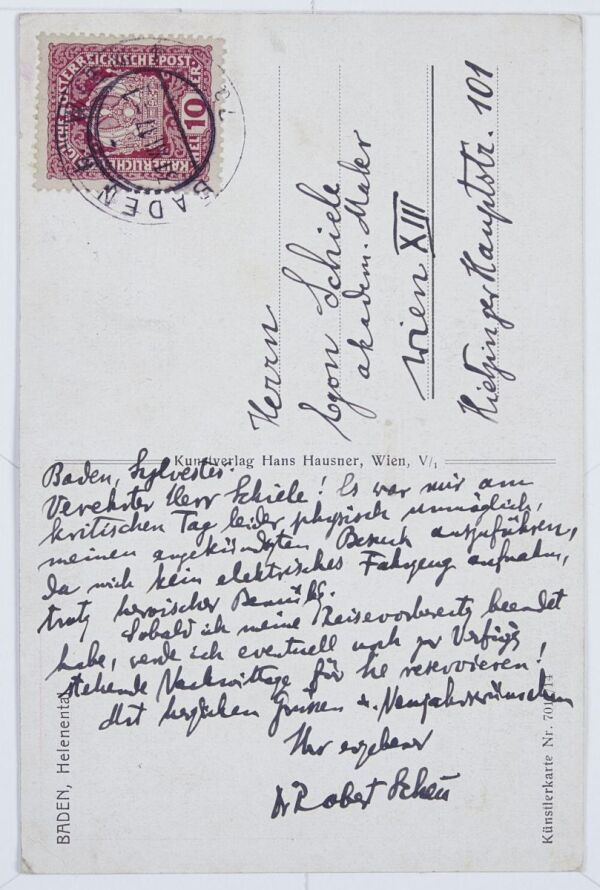 KAISERLICHE KÖNIGLICHE ÖSTERREICHISCHE POST
10
HELLER
BADEN
Herrn
Egon Schiele
akadem. Maler
Wien XIII
Hietzinger Hauptstr. 101
Kunstverlag Hans Hausner, Wien, V/1
Baden, Sylvester.
Verehrter Herr Schiele! Es war mir am
kritischen Tag leider physisch unmöglich,
meinen angekündigten Besuch auszuführen,
da mich kein elektrisches Fahrzeug aufnahm,
trotz heroischer Bemühg.
Sobald ich meine Reisevorbereitg beendet
habe, werde ich eventuell noch zur Verfügg
stehende Nachmittage für Sie reservieren!
Mit herzlichen Grüssen u. Neujahrswünschen
Ihr ergebener
Dr Robert Scheu
BADEN, Helenental
Künstlerkarte Nr.